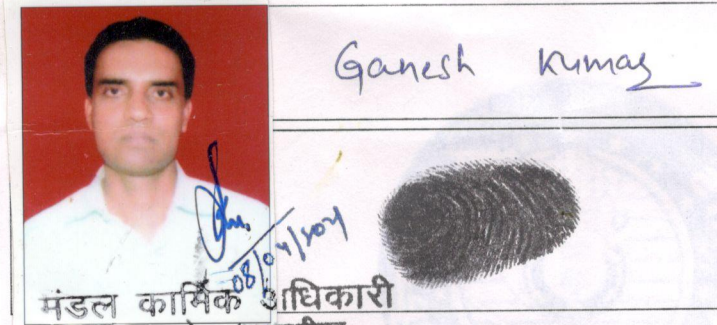 Ganesh Kumar
08/04/2021
मंडल कार्मिक अधिकारी